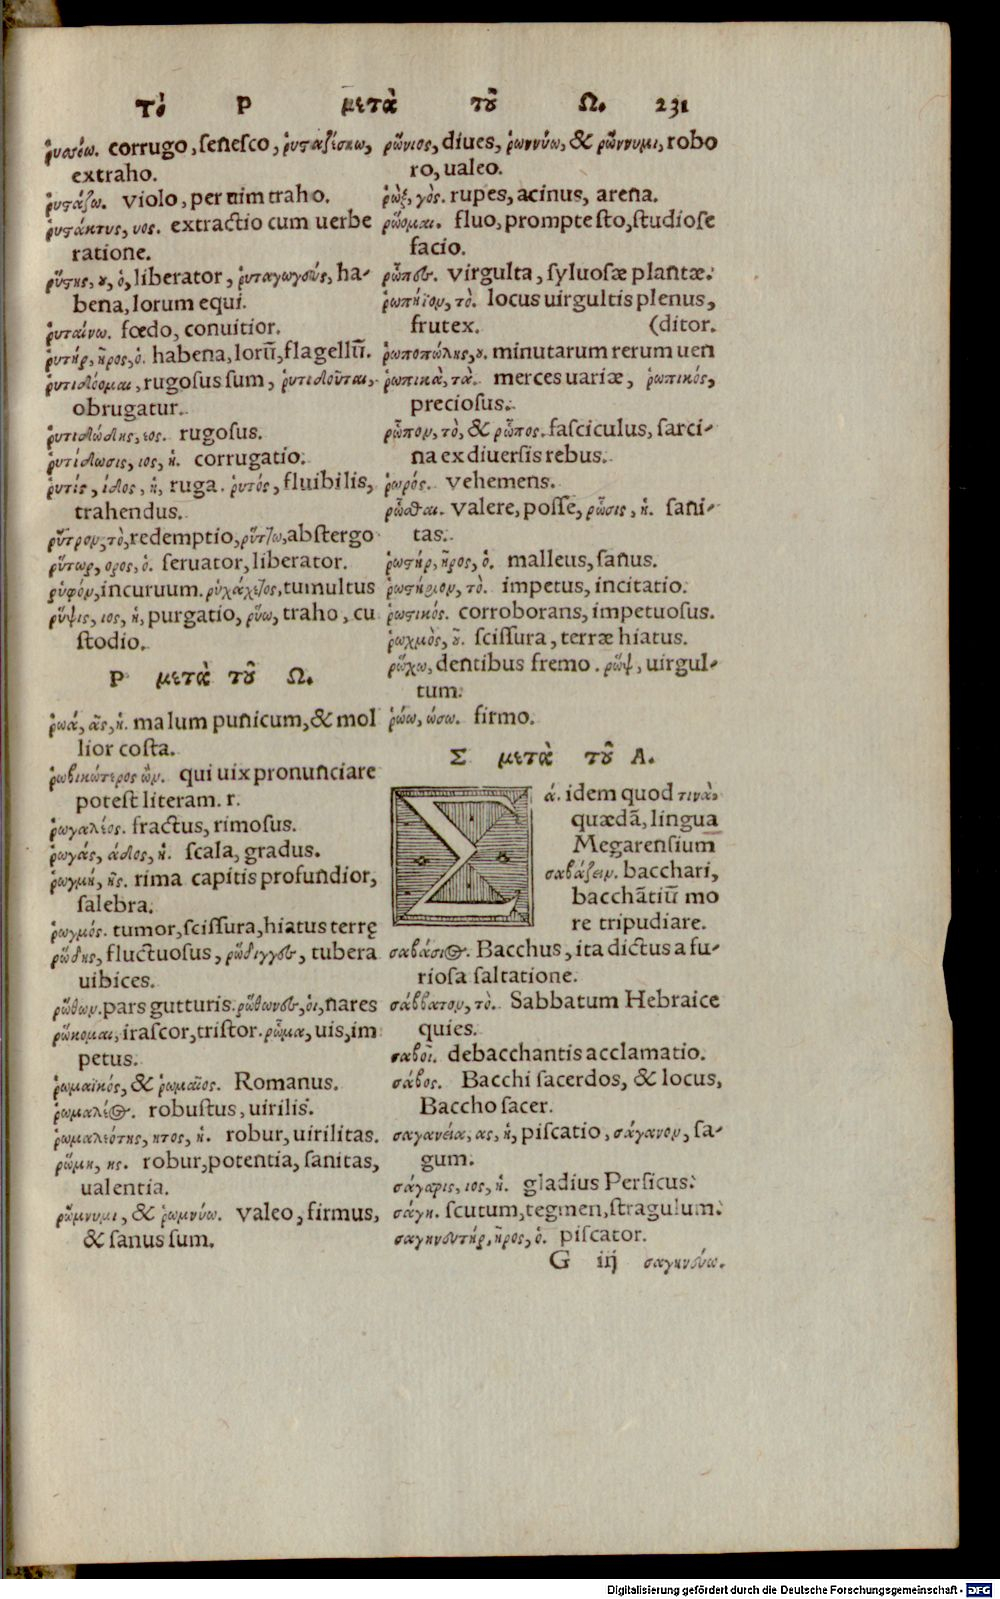 Τὸ Ρ μετὰ τοῦ Ω. 231
ῥυσέω. corrugo, senesco, ῥυσταζίσκω,
extraho.
ῥυστάζω. violo, per uim traho.
ῥυστάκτυς, υος. extractio cum uerbe
ratione.
ῥύστης, ου, ὁ, liberator, ῥυταγωγεύς, ha-
bena, lorum equi.
ῥυταίνω. fœdo, conuitior.
ῥυτήρ, ῆρος, ὁ. habena, lorū, flagellū.
ῥυτιδόομαι, rugosus sum, ῥυτιδοῦται,
obrugatur.
ῥυτιδώδης, εος. rugosus.
ῥυτίδωσις, ιος, ἡ. corrugatio.
ῥυτίς, ίδος, ἡ, ruga. ῥυτός, fluibilis,
trahendus.
ῥύτρον, τὸ, redemptio, ῥύτζω, abstergo
ῥύτωρ, ορος, ὁ. seruator, liberator.
ῥυφόν, incuruum. tumultus
ῥύψις, ιος, ἡ, purgatio, ῥύω, traho, cu
stodio.
Ρ μετὰ τοῦ Ω.
ῥωά, ᾶς, ἡ. malum punicum, & mol
lior costa.
ῥωβικώτερος ὢν. qui uix pronunciare
potest literam. r.
ῥωγαλέος. fractus, rimosus.
ῥωγάς, άδος, ἡ. scala, gradus.
ῥωγμή, ῆς. rima capitis profundior,
salebra.
ῥωγμός. tumor, scissura, hiatus terrę
ῥώδης, fluctuosus, ῥώδιγγες, tubera
uibices.
ῥώθων. pars gutturis. ῥώθωνες, οἱ, nares
ῥώκομαι, irascor, tristor. ῥῶμα, uis, im
petus.
ῥωμαϊκός, & ῥωμαῖος. Romanus.
ῥωμαλέος. robustus, uirilis.
ῥωμαλεότης, ητος, ἡ. robur, uirilitas.
ῥώμη, ης. robur, potentia, sanitas,
ualentia.
ῥώμνυμι, & ῥωμνύω. valeo, firmus,
& sanus sum.
ῥώνιος, diues, ῥωννύω, & ῥώννυμι, robo
ro, ualeo.
ῥὼξ, γὸς. rupes, acinus, arena.
ῥώομαι. fluo, prompte sto, studiose
facio.
ῥῶπες. virgulta, syluosæ plantæ.
ῥωπήϊον, τὸ. locus uirgultis plenus,
frutex. (ditor.
ῥωποπώλης, ου. minutarum rerum uen
ῥωπικὰ, τὰ. merces uariæ, ῥωπικός,
preciosus.
ῥῶπον, τὸ, & ῥῶπος. fasciculus, sarci-
na ex diuersis rebus.
ῥωρός. vehemens.
ῥῶσθαι. valere, posse, ῥῶσις, ἡ. sani-
tas.
ῥωστήρ, ῆρος, ὁ. malleus, sanus.
ῥωστήριον, τὸ. impetus, incitatio.
ῥωστικός. corroborans, impetuosus.
ῥωχμὸς, οῦ. scissura, terræ hiatus.
ῥώχω, dentibus fremo. ῥώψ, uirgul-
tum.
ῥώω, ώσω. firmo.
Σ μετὰ τοῦ Α.
Σά. idem quod τινὰ,
quædā, lingua
Megarensium
σαβάζειν. bacchari,
bacchātiū mo
re tripudiare.
σαβάσιος. Bacchus, ita dictus a fu-
riosa saltatione.
σάββατον, τὸ. Sabbatum Hebraice
quies.
σαβοῖ. debacchantis acclamatio.
σάβος. Bacchi sacerdos, & locus,
Baccho sacer.
σαγανεία, ας, ἡ, piscatio, σάγανον, sa-
gum.
σάγαρις, ιος, ἡ. gladius Persicus.
σάγη. scutum, tegmen, stragulum.
σαγηνευτήρ, ῆρος, ὁ. piscator.
G iij σαγηνεύω.
Digitalisierung gefördert durch die Deutsche Forschungsgemeinschaft - DFG